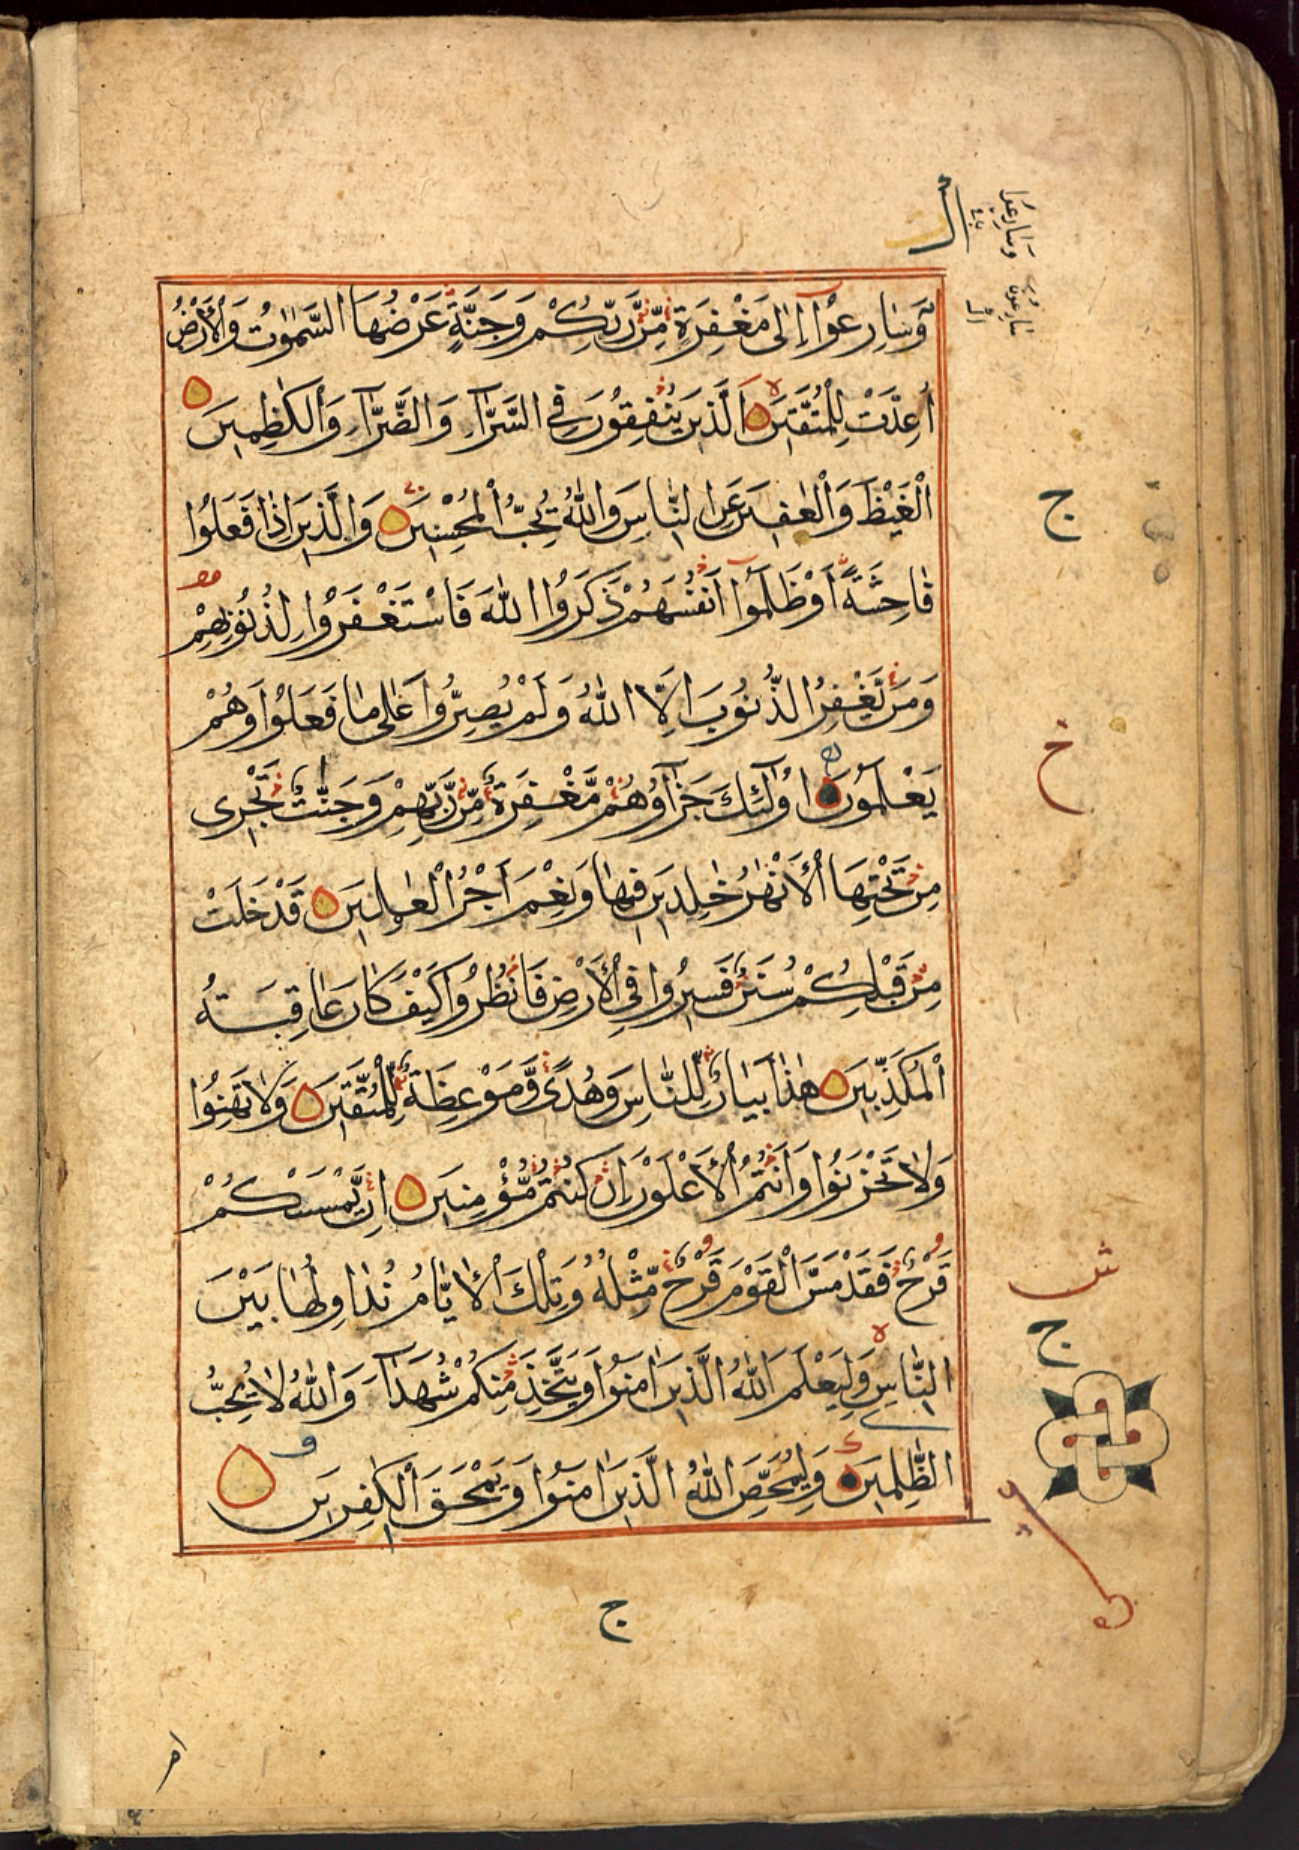 وَسَارِعُوْٓا اِلٰى مَغْفِرَةٍ مِّنْ رَّبِّكُمْ وَجَنَّةٍ عَرْضُهَا السَّمٰوٰتُ وَالْاَرْضُ
اُعِدَّتْ لِلْمُتَّقِيْنَ الَّذِيْنَ يُنْفِقُوْنَ فِى السَّرَّآءِ وَالضَّرَّآءِ وَالْكٰظِمِيْنَ
الْغَيْظَ وَالْعَافِيْنَ عَنِ النَّاسِ وَاللّٰهُ يُحِبُّ الْمُحْسِنِيْنَ وَالَّذِيْنَ اِذَا فَعَلُوْا
فَاحِشَةً اَوْ ظَلَمُوْٓا اَنْفُسَهُمْ ذَكَرُوا اللّٰهَ فَاسْتَغْفَرُوْا لِذُنُوْبِهِمْ
وَمَنْ يَّغْفِرُ الذُّنُوْبَ اِلَّا اللّٰهُ وَلَمْ يُصِرُّوْا عَلٰى مَا فَعَلُوْا وَهُمْ
يَعْلَمُوْنَ اُولٰٓئِكَ جَزَآؤُهُمْ مَّغْفِرَةٌ مِّنْ رَّبِّهِمْ وَجَنّٰتٌ تَجْرِى
مِنْ تَحْتِهَا الْاَنْهٰرُ خٰلِدِيْنَ فِيْهَا وَنِعْمَ اَجْرُ الْعٰمِلِيْنَ قَدْ خَلَتْ
مِنْ قَبْلِكُمْ سُنَنٌ فَسِيْرُوْا فِى الْاَرْضِ فَانْظُرُوْا كَيْفَ كَانَ عَاقِبَةُ
الْمُكَذِّبِيْنَ هٰذَا بَيَانٌ لِّلنَّاسِ وَهُدًى وَّمَوْعِظَةٌ لِّلْمُتَّقِيْنَ وَلَا تَهِنُوْا
وَلَا تَحْزَنُوْا وَاَنْتُمُ الْاَعْلَوْنَ اِنْ كُنْتُمْ مُّؤْمِنِيْنَ اِنْ يَّمْسَسْكُمْ
قَرْحٌ فَقَدْ مَسَّ الْقَوْمَ قَرْحٌ مِّثْلُهُ وَتِلْكَ الْاَيَّامُ نُدَاوِلُهَا بَيْنَ
النَّاسِ وَلِيَعْلَمَ اللّٰهُ الَّذِيْنَ اٰمَنُوْا وَيَتَّخِذَ مِنْكُمْ شُهَدَآءَ وَاللّٰهُ لَا يُحِبُّ
الظّٰلِمِيْنَ وَلِيُمَحِّصَ اللّٰهُ الَّذِيْنَ اٰمَنُوْا وَيَمْحَقَ الْكٰفِرِيْنَ
وَسَارِعُوْا
ج
خ
ش
ج
ج